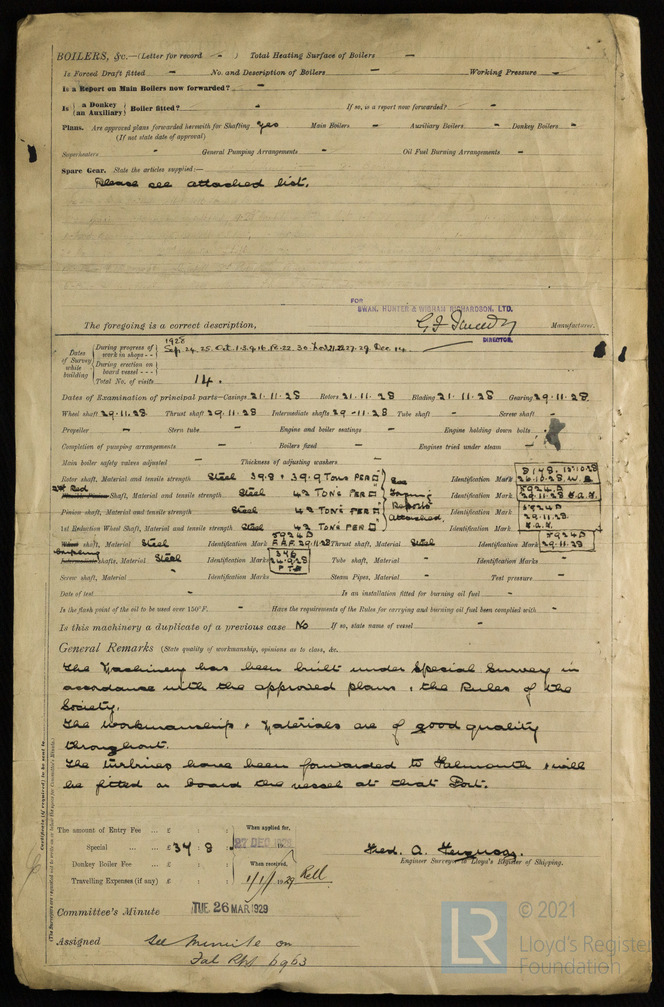 BOILERS, &c.—(Letter for record - ) Total Heating Surface of Boilers -
Is Forced Draft fitted - No. and Description of Boilers - Working Pressure -
Is a Report on Main Boilers now forwarded? -
Is {a Donkey / an Auxiliary} Boiler fitted? - If so, is a report now forwarded? -
Plans. Are approved plans forwarded herewith for Shafting yes Main Boilers - Auxiliary Boilers - Donkey Boilers -
(If not state date of approval)
Superheaters - General Pumping Arrangements - Oil Fuel Burning Arrangements -
Spare Gear. State the articles supplied:—
Please see attached list.
FOR
SWAN, HUNTER & WIGHAM RICHARDSON, LTD.
The foregoing is a correct description, Manufacturer.
DIRECTOR.
Dates of Survey while building
1928
During progress of work in shops - - Sep. 24. 25. Oct. 1.3.9.16. 22. 30. 27.29. Dec. 14.
During erection on board vessel - - -
Total No. of visits 14.
Dates of Examination of principal parts—Casings 21.11.28 Rotors 21.11.28 Blading 21.11.28 Gearing 29.11.28.
Wheel shaft 29.11.28 Thrust shaft 29.11.28 Intermediate shafts 29.11.28 Tube shaft - Screw shaft -
Propeller - Stern tube - Engine and boiler seatings - Engine holding down bolts -
Completion of pumping arrangements - Boilers fixed - Engines tried under steam -
Main boiler safety valves adjusted - Thickness of adjusting washers -
Rotor shaft, Material and tensile strength Steel 39.8 & 39.9 Tons PER □ Identification Mark 8148. 26.10.28. W.B
2nd Red Shaft, Material and tensile strength Steel 42 TONS PER □ Identification Mark 5924.D 29.11.28
Pinion shaft, Material and tensile strength Steel 42 TONS PER □ Identification Mark 5924D 29.11.28.
See Forging Reports Attached.
1st Reduction Wheel Shaft, Material and tensile strength Steel 42 TONS PER □
Shaft, Material Steel Identification Mark 5924D 29.11.28 Thrust shaft, Material Steel Identification Mark 5924D 29.11.28
shafts, Material Steel Identification Marks 346 24.9.28 Tube shaft, Material - Identification Marks -
Screw shaft, Material - Identification Marks - Steam Pipes, Material - Test pressure -
Date of test - Is an installation fitted for burning oil fuel -
Is the flash point of the oil to be used over 150°F. - Have the requirements of the Rules for carrying and burning oil fuel been complied with -
Is this machinery a duplicate of a previous case No If so, state name of vessel -
General Remarks (State quality of workmanship, opinions as to class, &c.
The Machinery has been built under Special Survey in
accordance with the approved plans & the Rules of the
Society.
The Workmanship & Materials are of good quality
throughout.
The turbines have been forwarded to Falmouth & will
be fitted on board the vessel at that Port.
Certificate (if required) to be sent to
(The Surveyors are requested not to write on or below the space for Committee's Minute.)
The amount of Entry Fee ... £ : : When applied for,
Special ... ... £ 34 : 8 : 27 DEC 1928
Donkey Boiler Fee ... £ : : When received,
Travelling Expenses (if any) £ : : 1/1/1929
Fred. A. Ferguson.
Engineer Surveyor to Lloyd's Register of Shipping.
Committee's Minute TUE. 26 MAR 1929
Assigned See Minute on
Fal Rpt 6963
LR © 2021
Lloyd's Register
Foundation